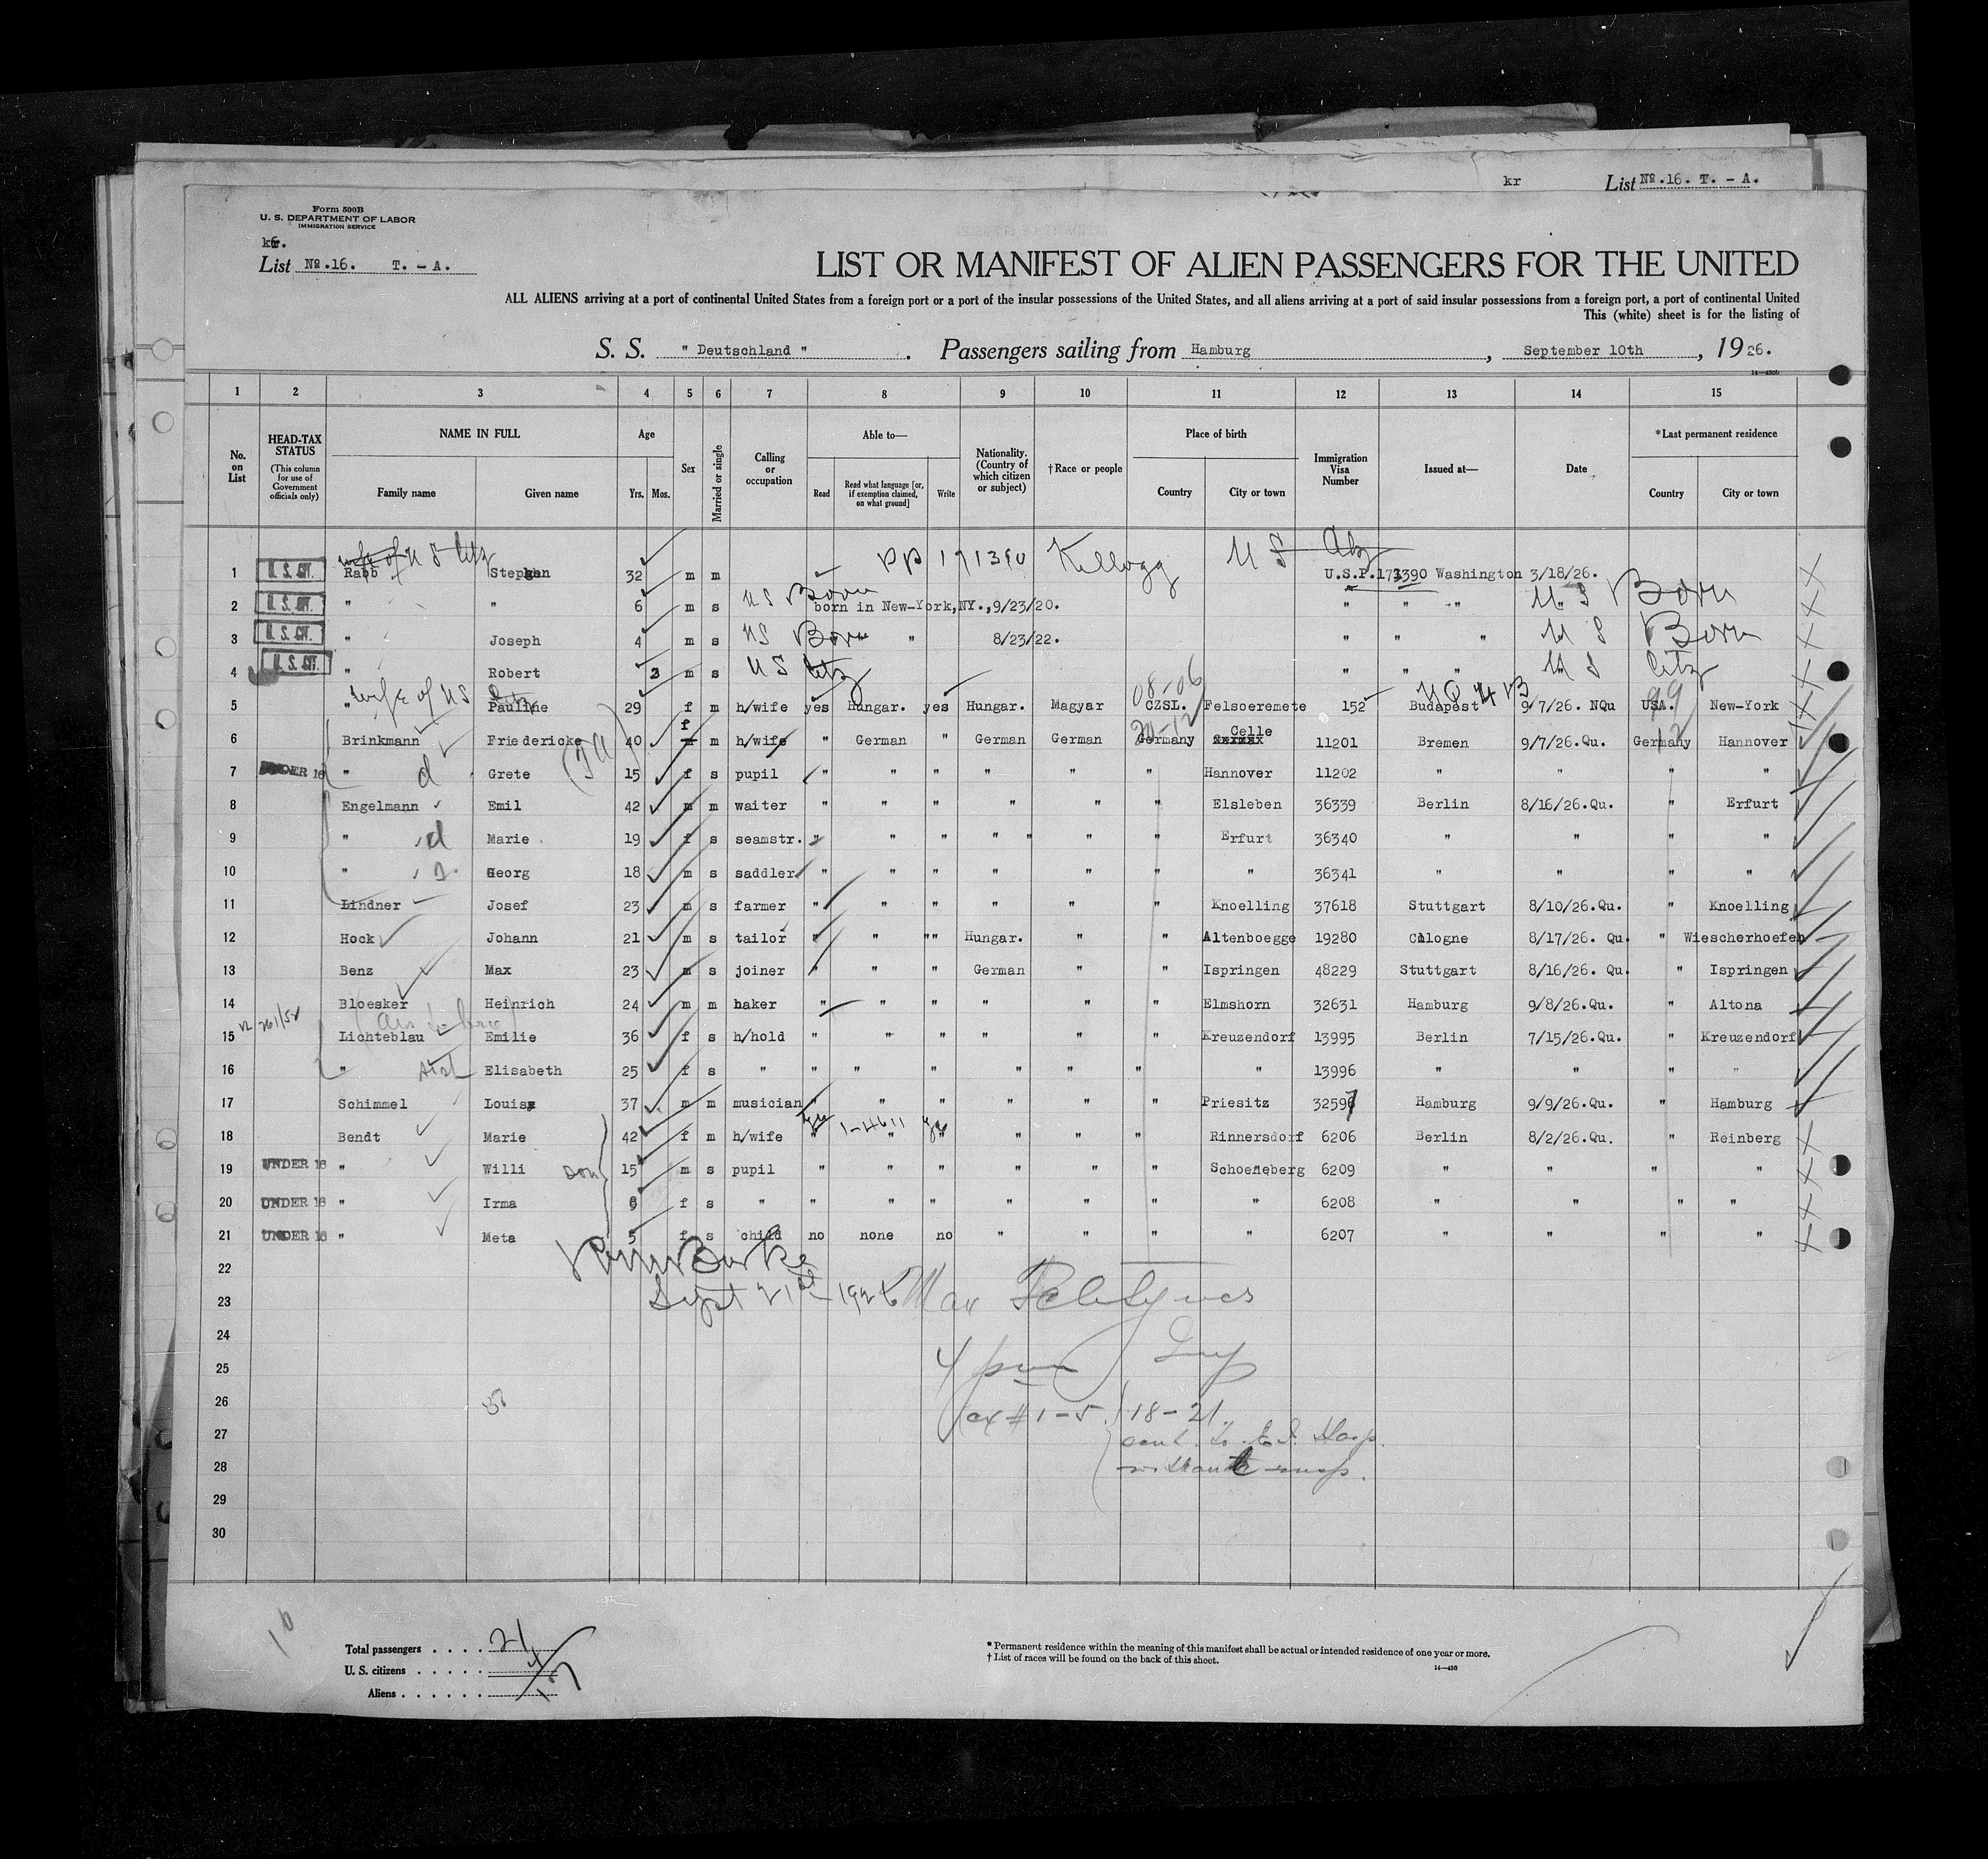 kr List No.16. T. - A.
Form 500B
U. S. DEPARTMENT OF LABOR
IMMIGRATION SERVICE
List No.16. T. - A.
LIST OR MANIFEST OF ALIEN PASSENGERS FOR THE UNITED
ALL ALIENS arriving at a port of continental United States from a foreign port or a port of the insular possessions of the United States, and all aliens arriving at a port of said insular possessions from a foreign port, a port of continental United
This (white) sheet is for the listing of
S. S. " Deutschland " . Passengers sailing from Hamburg , September 10th , 1926.
14—430b
1 2 3 4 5 6 7 8 9 10 11 12 13 14 15
No. on List
HEAD-TAX STATUS (This column for use of Government officials only)
NAME IN FULL Family name Given name
Age Yrs. Mos.
Sex
Married or single
Calling or occupation
Able to— Read Read what language [or, if exemption claimed, on what ground] Write
Nationality. (Country of which citizen or subject)
†Race or people
Place of birth Country City or town
Immigration Visa Number
Issued at—
Date
*Last permanent residence Country City or town
wife of U S Citz PP 171390 Kellogg U S
1 U. S. CIT. Rabb Stephan 32 m m U.S.P.171390 Washington 3/18/26.
2 U. S. CIT. " " 6 m s US Born born in New-York,NY.,9/23/20. " " " U. S Born
3 U. S. CIT. " Joseph 4 m s US Born " 8/23/22. " " " U S Born
4 U. S. CIT. " Robert 3 m s US Citz " " " U S Citz
wife of US Citz 08-06 99
5 " Pauline 29 f m h/wife yes Hungar. yes Hungar. Magyar CZSL. Felsoeremete 152 Budapest 9/7/26. NQu USA. New-York
6 Brinkmann Friedericke 40 f m h/wife " German " German German Germany Celle 11201 Bremen 9/7/26.Qu. Germany Hannover
7 UNDER 16 " d Grete 15 f s pupil " " " " " " Hannover 11202 " " " "
8 Engelmann Emil 42 m m waiter " " " " " " Elsleben 36339 Berlin 8/16/26.Qu. " Erfurt
9 " d Marie 19 f s seamstr. " " " " " " " Erfurt 36340 " " " "
10 " s Georg 18 m s saddler " " " " " " " 36341 " " " "
11 Lindner Josef 23 m s farmer " " " " " " Knoelling 37618 Stuttgart 8/10/26.Qu. " Knoelling
12 Hock Johann 21 m s tailor " " "" Hungar. " " Altenboegge 19280 Cologne 8/17/26. Qu. " Wiescherhoefen
13 Benz Max 23 m s joiner " " " German " " Ispringen 48229 Stuttgart 8/16/26. Qu. " Ispringen
14 Bloesker Heinrich 24 m m baker " " " " " " Elmshorn 32631 Hamburg 9/8/26.Qu. " Altona
15 Lichteblau Emilie 36 f s h/hold " " " " " " Kreuzendorf 13995 Berlin 7/15/26.Qu. " Kreuzendorf
16 " sist Elisabeth 25 f s " " " " " " " " 13996 " " " "
17 Schimmel Louis 37 m m musician " " " " " " Priesitz 32597 Hamburg 9/9/26.Qu. " Hamburg
18 Bendt Marie 42 f m h/wife " " " " " " Rinnersdorf 6206 Berlin 8/2/26.Qu. " Reinberg
19 UNDER 16 " Willi son 15 m s pupil " " " " " " Schoeneberg 6209 " " " "
20 UNDER 16 " Irma 8 f s " " " " " " " " 6208 " " " "
21 UNDER 16 " Meta 5 f s child no none no " " " " 6207 " " " "
22
23 Sept 21st 1926 Max
24
25
26 ex # 1-5 18-21
27
28
29
30
Total passengers . . . . 21
U. S. citizens . . . . . 4
Aliens . . . . . . 17
* Permanent residence within the meaning of this manifest shall be actual or intended residence of one year or more.
† List of races will be found on the back of this sheet.
14—430